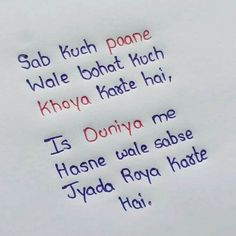 Sab Kuch paane
Wale bohat Kuch
Khoya Karte hai,
Is Duniya me
Hasne wale sabse
Jyada Roya Karte
Hai.